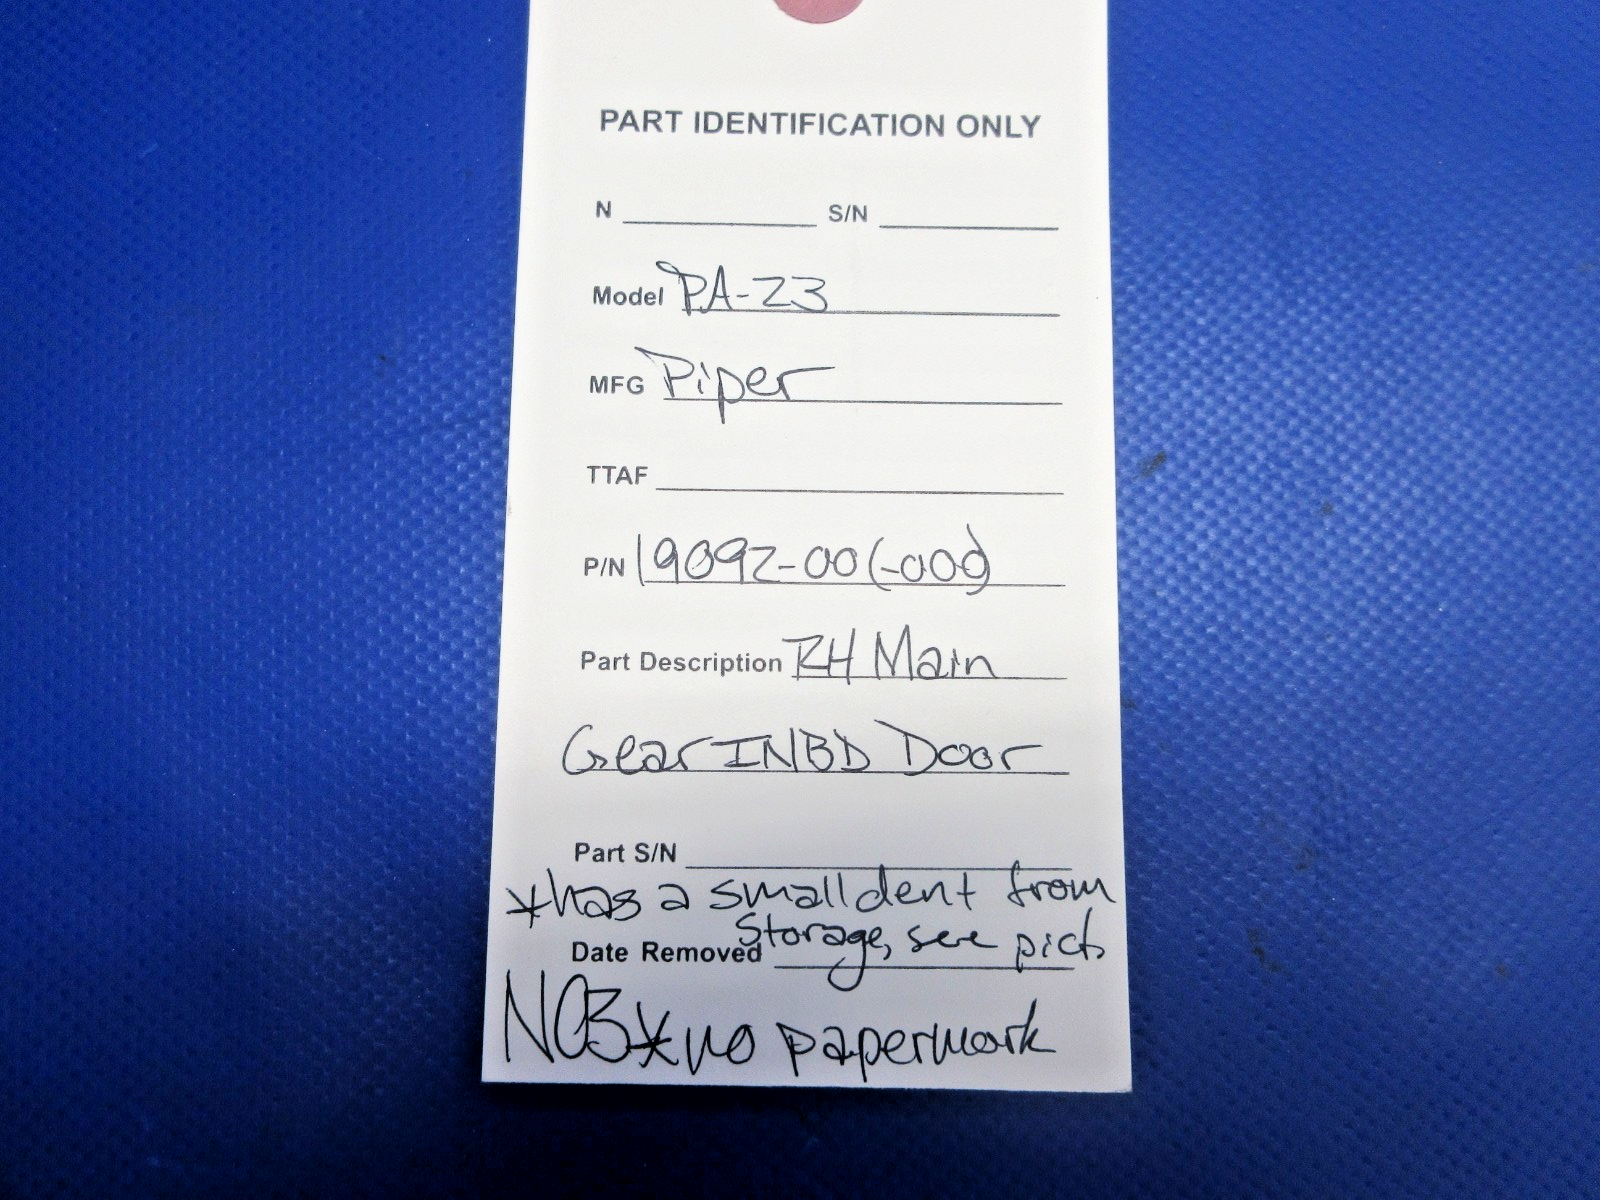 PART IDENTIFICATION ONLY
N S/N
Model PA-23
MFG Piper
TTAF
P/N 19092-00 (-000)
Part Description RH Main
Gear INBD Door
Part S/N
*has a small dent from
Storage, see pict.
Date Removed
*no paperwork